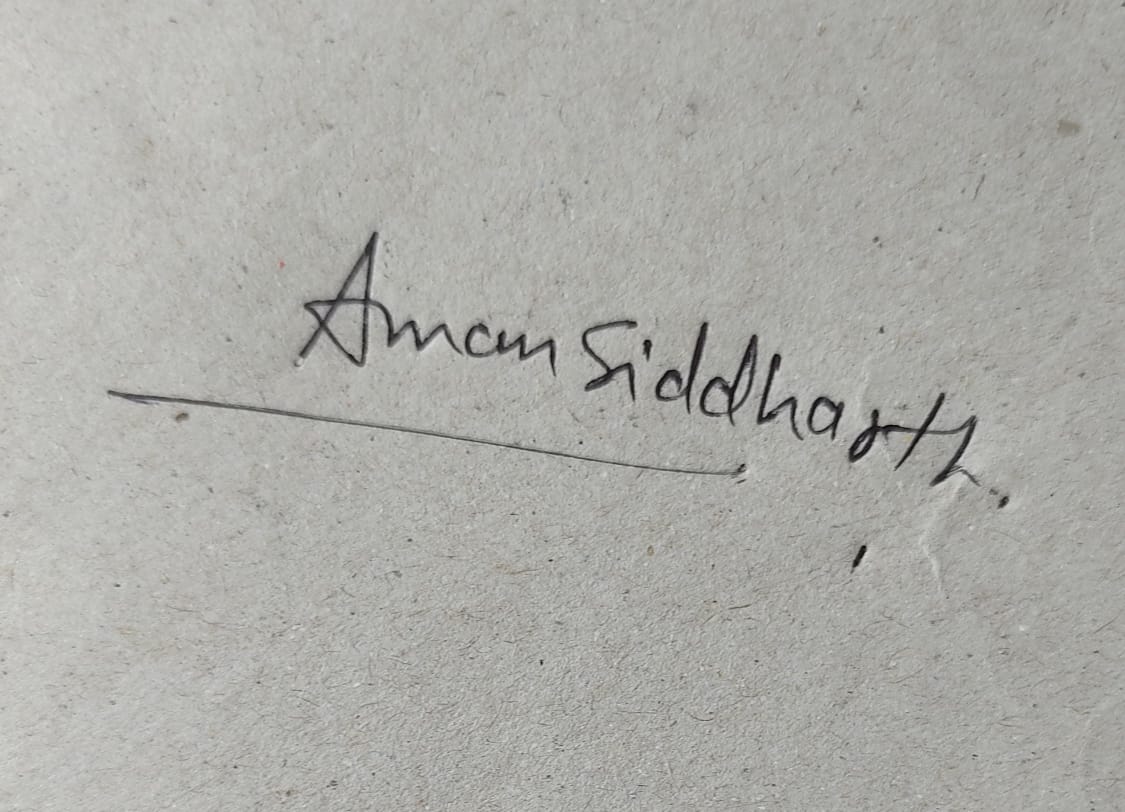 Aman Siddharth.